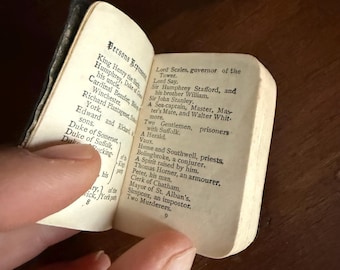 Persons Represented
King Henry the
Humphrey, Duke of
his uncle.
Cardinal
Winchester.
Richard Plantagenet,
York.
Edward and
sons.
Duke of Somerset.
Duke of Suffolk.
Duke of
of the
York
8
Lord Scales, governor of the
Tower.
Lord Say.
Sir Humphrey Stafford, and
his brother William.
Sir John Stanley.
A Sea-captain, Master, Mas-
ter's Mate, and Walter Whit-
more.
Two Gentlemen, prisoners
with Suffolk.
A Herald.
Vaux.
Hume and Southwell, priests.
Bolingbroke, a conjurer.
A Spirit raised by him.
Thomas Horner, an armourer.
Peter, his man.
Clerk of Chatham.
Mayor of St. Alban's.
Simpcox, an impostor.
Two Murderers.
9